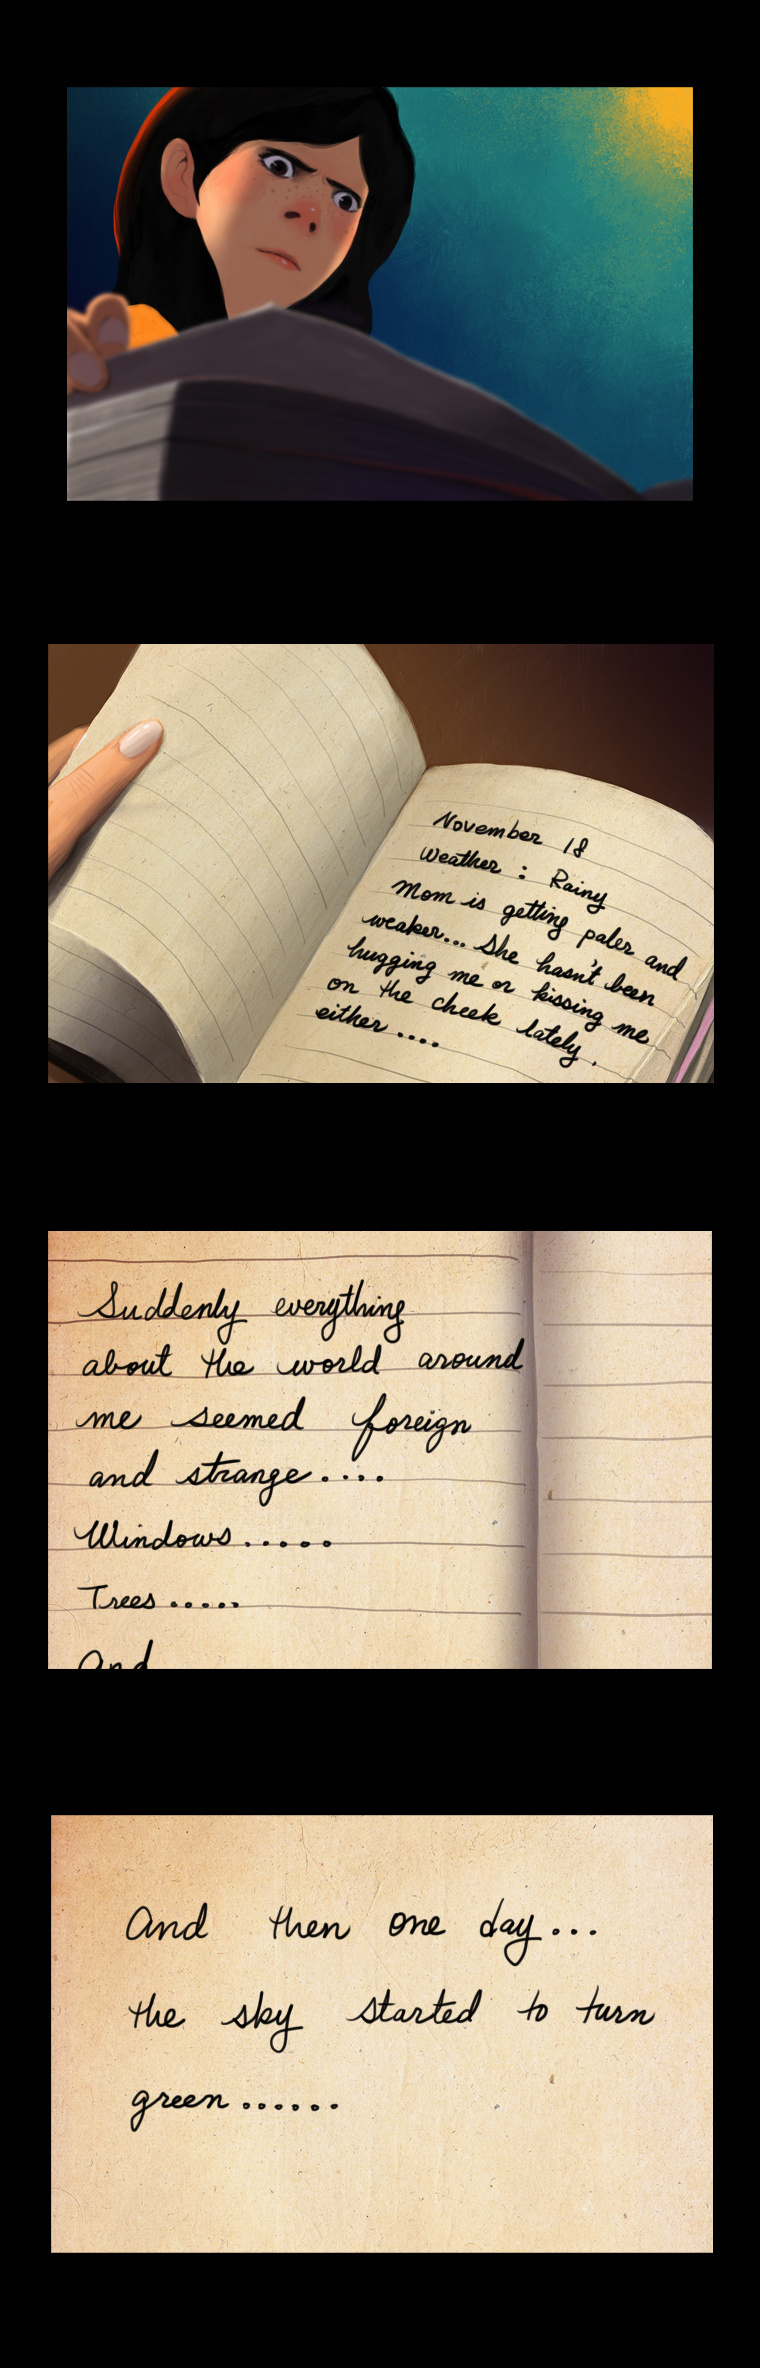 November 18
Weather : Rainy
Mom is getting paler and
weaker... She hasn't been
hugging me or kissing me
on the cheek lately.
either ....
Suddenly everything
about the world around
me seemed foreign
and strange ....
Windows .....
Trees .....
And
And then one day...
the sky started to turn
green ......